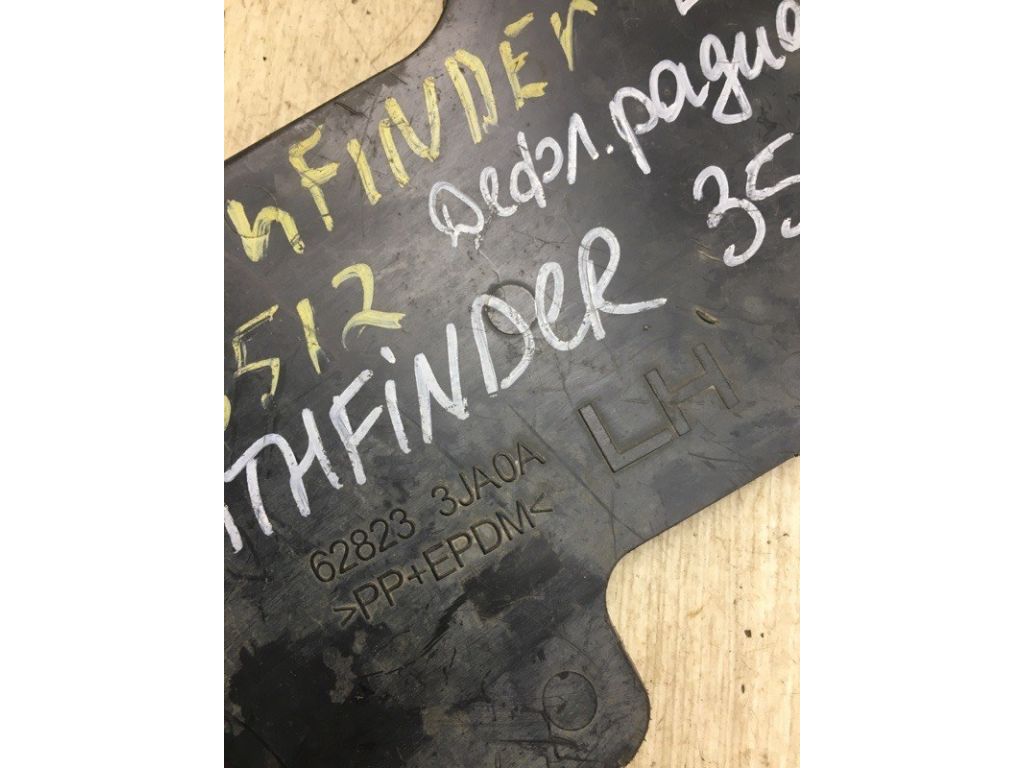 hFINDER
3512
Дефл. радиа
35
THFiNDER
LH
62823 3JA0A
>PP+EPDM<